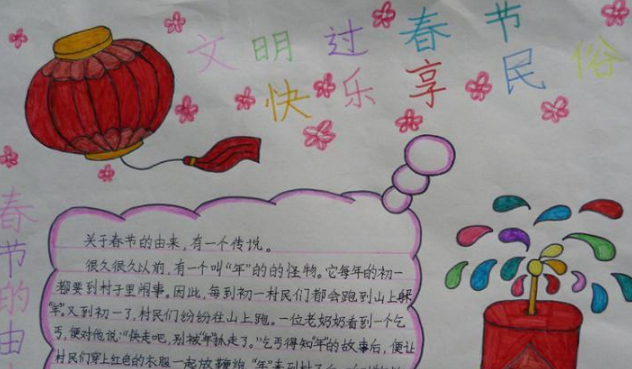 文明过春节
快乐享民俗
春节的由
关于春节的由来,有一个传说。
很久很久以前,有一个叫“年”的的怪物。它每年的初一
都要到村子里闹事。因此,每到初一村民们都会跑到山上躲
“年”。又到初一了,村民们纷纷往山上跑。一位老奶奶看到一个乞
丐,便对他说:“快走吧,别被“年”抓走了。”乞丐得知“年”的故事后,便让
村民们穿上红色的衣服一起放鞭炮